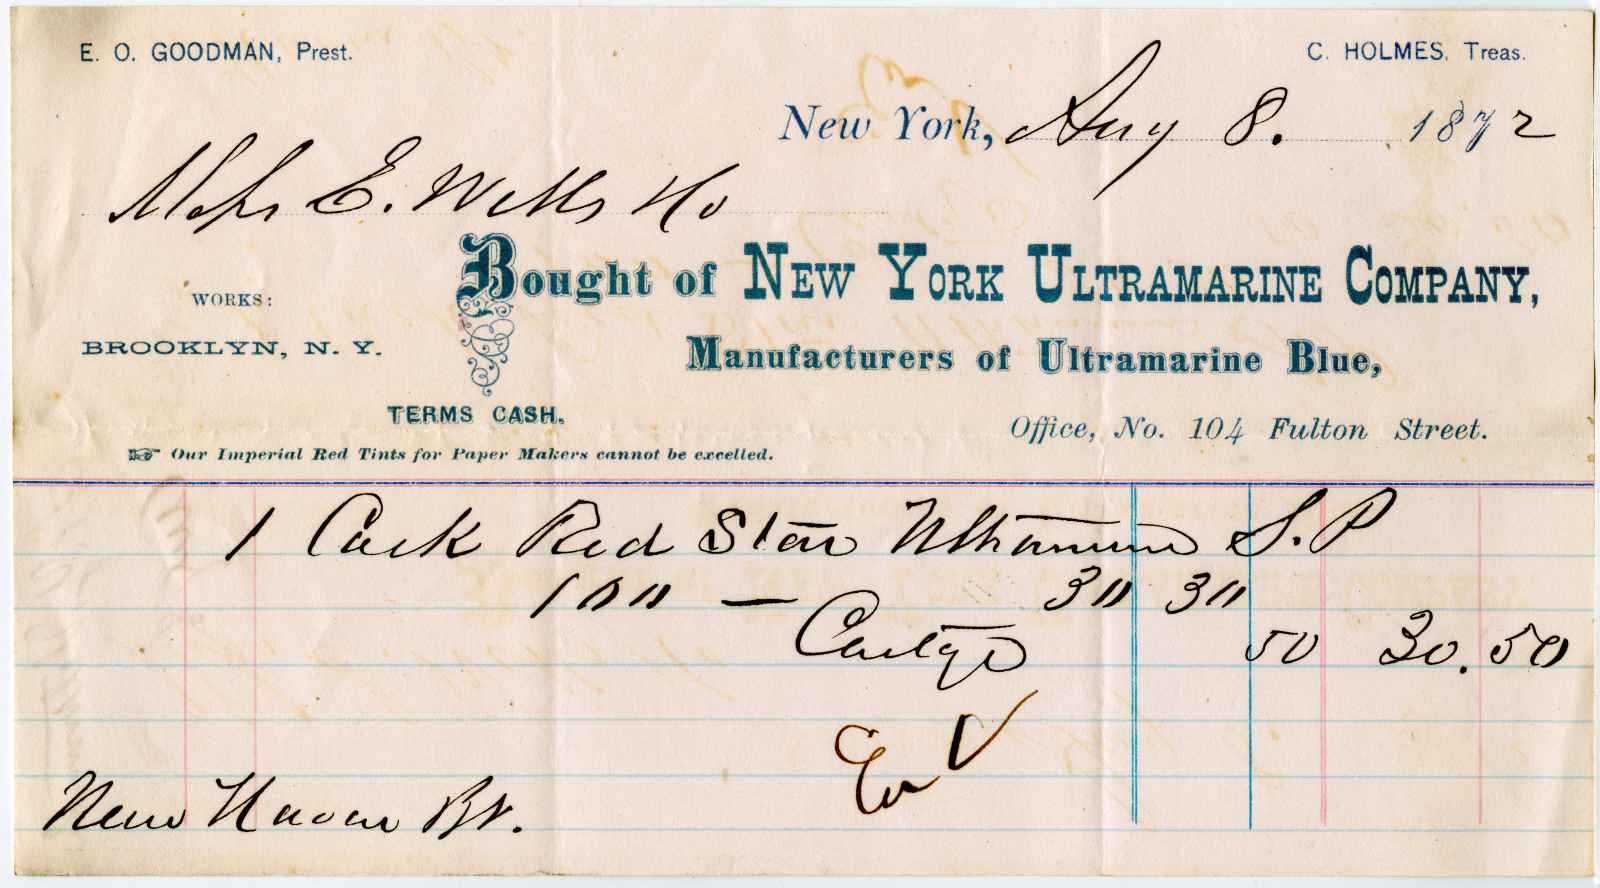 E. O. GOODMAN, Prest.
C. HOLMES, Treas.
New York, Aug 8. 1872
Messrs E. Wells & Co
Bought of NEW YORK ULTRAMARINE COMPANY,
WORKS:
BROOKLYN, N. Y.
Manufacturers of Ultramarine Blue,
TERMS CASH.
Office, No. 104 Fulton Street.
☞ Our Imperial Red Tints for Paper Makers cannot be excelled.
1 Cask Red Star Ultramarine S.P
100 — 30 30
Cartge 50 30.50
New Haven Bt.